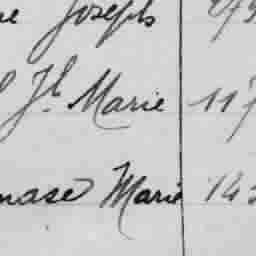 Joseph
Jh Marie 117
mase Marie 14